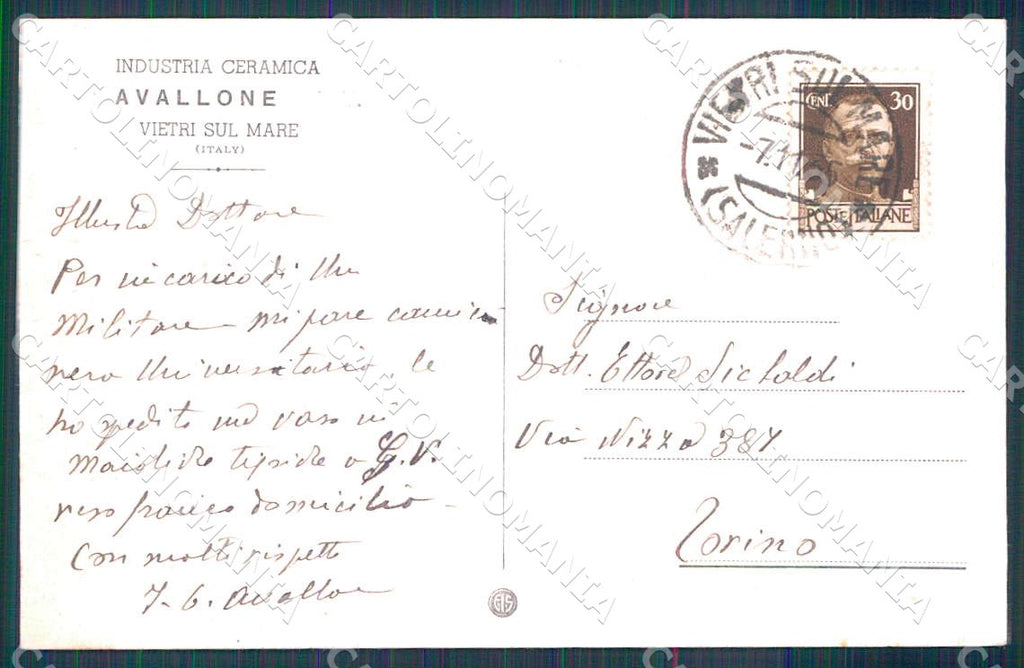 INDUSTRIA CERAMICA
AVALLONE
VIETRI SUL MARE
(ITALY)
Illustre Dottore
Per incarico di Un
Militare mi pare camicia
nera Universitario, le
ho spedito un vaso in
maiolica a G.V.
reso franco domicilio
Con molti rispetti
Avallone
VIETRI SUL MARE
(SALERNO)
CENT. 30
POSTE ITALIANE
Signore
Dott. Ettore Sicbaldi
Via Nizza 387
Torino
CARTOLINOMANIA